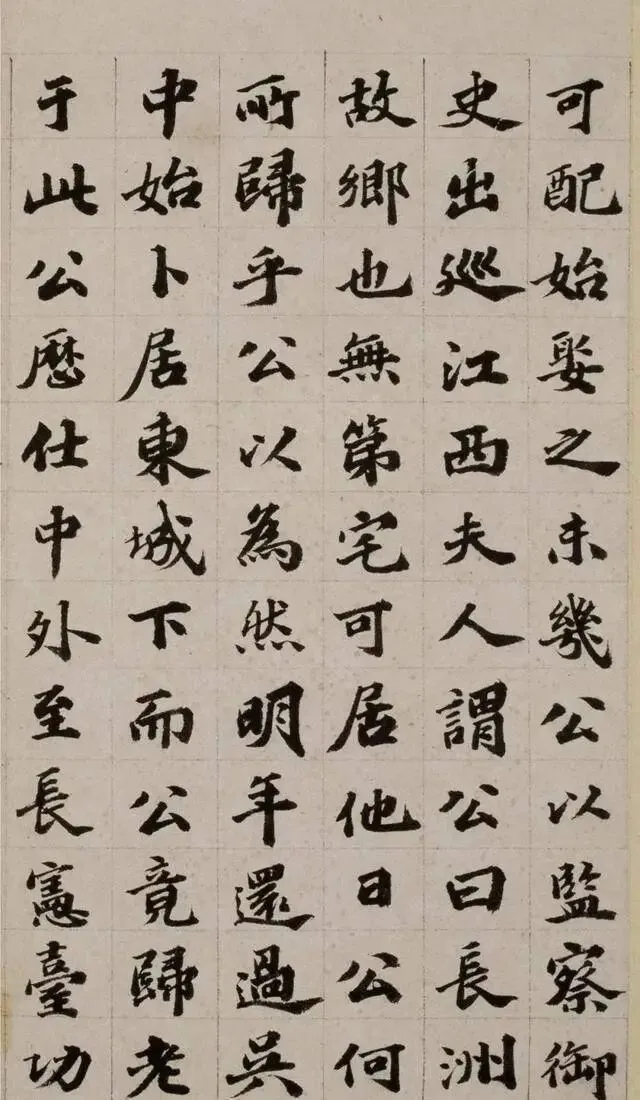 可配始娶之未幾公以監察御
史出巡江西夫人謂公曰長洲
故鄉也無第宅可居他日公何
所歸乎公以為然明年還過吳
中始卜居東城下而公竟歸老
于此公歷仕中外至長憲臺功